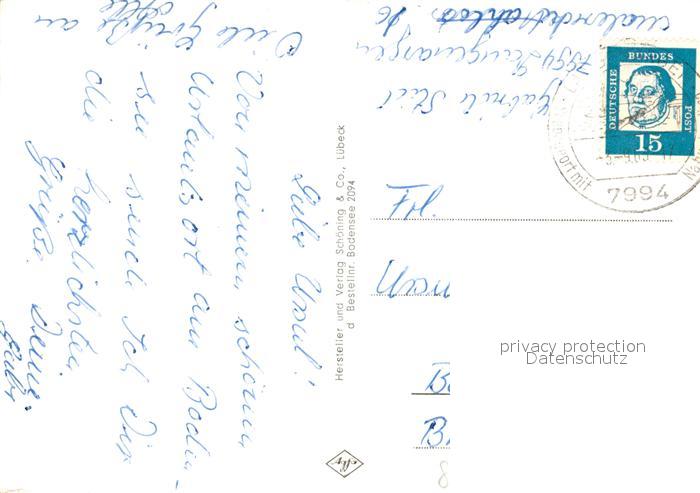 Liebe Ursul!
Von meinem schönen
Urlaubsort am Boden-
see sende ich Dir
die herzlichsten
Grüße. Deine
Gaby
Viele Grüße an
Hersteller und Verlag Schöning & Co., Lübeck
d Bestellnr. Bodensee 2094
Gabriele
7994 Langenargen
DEUTSCHE BUNDES POST
15
7994
Frl.
privacy protection
Datenschutz